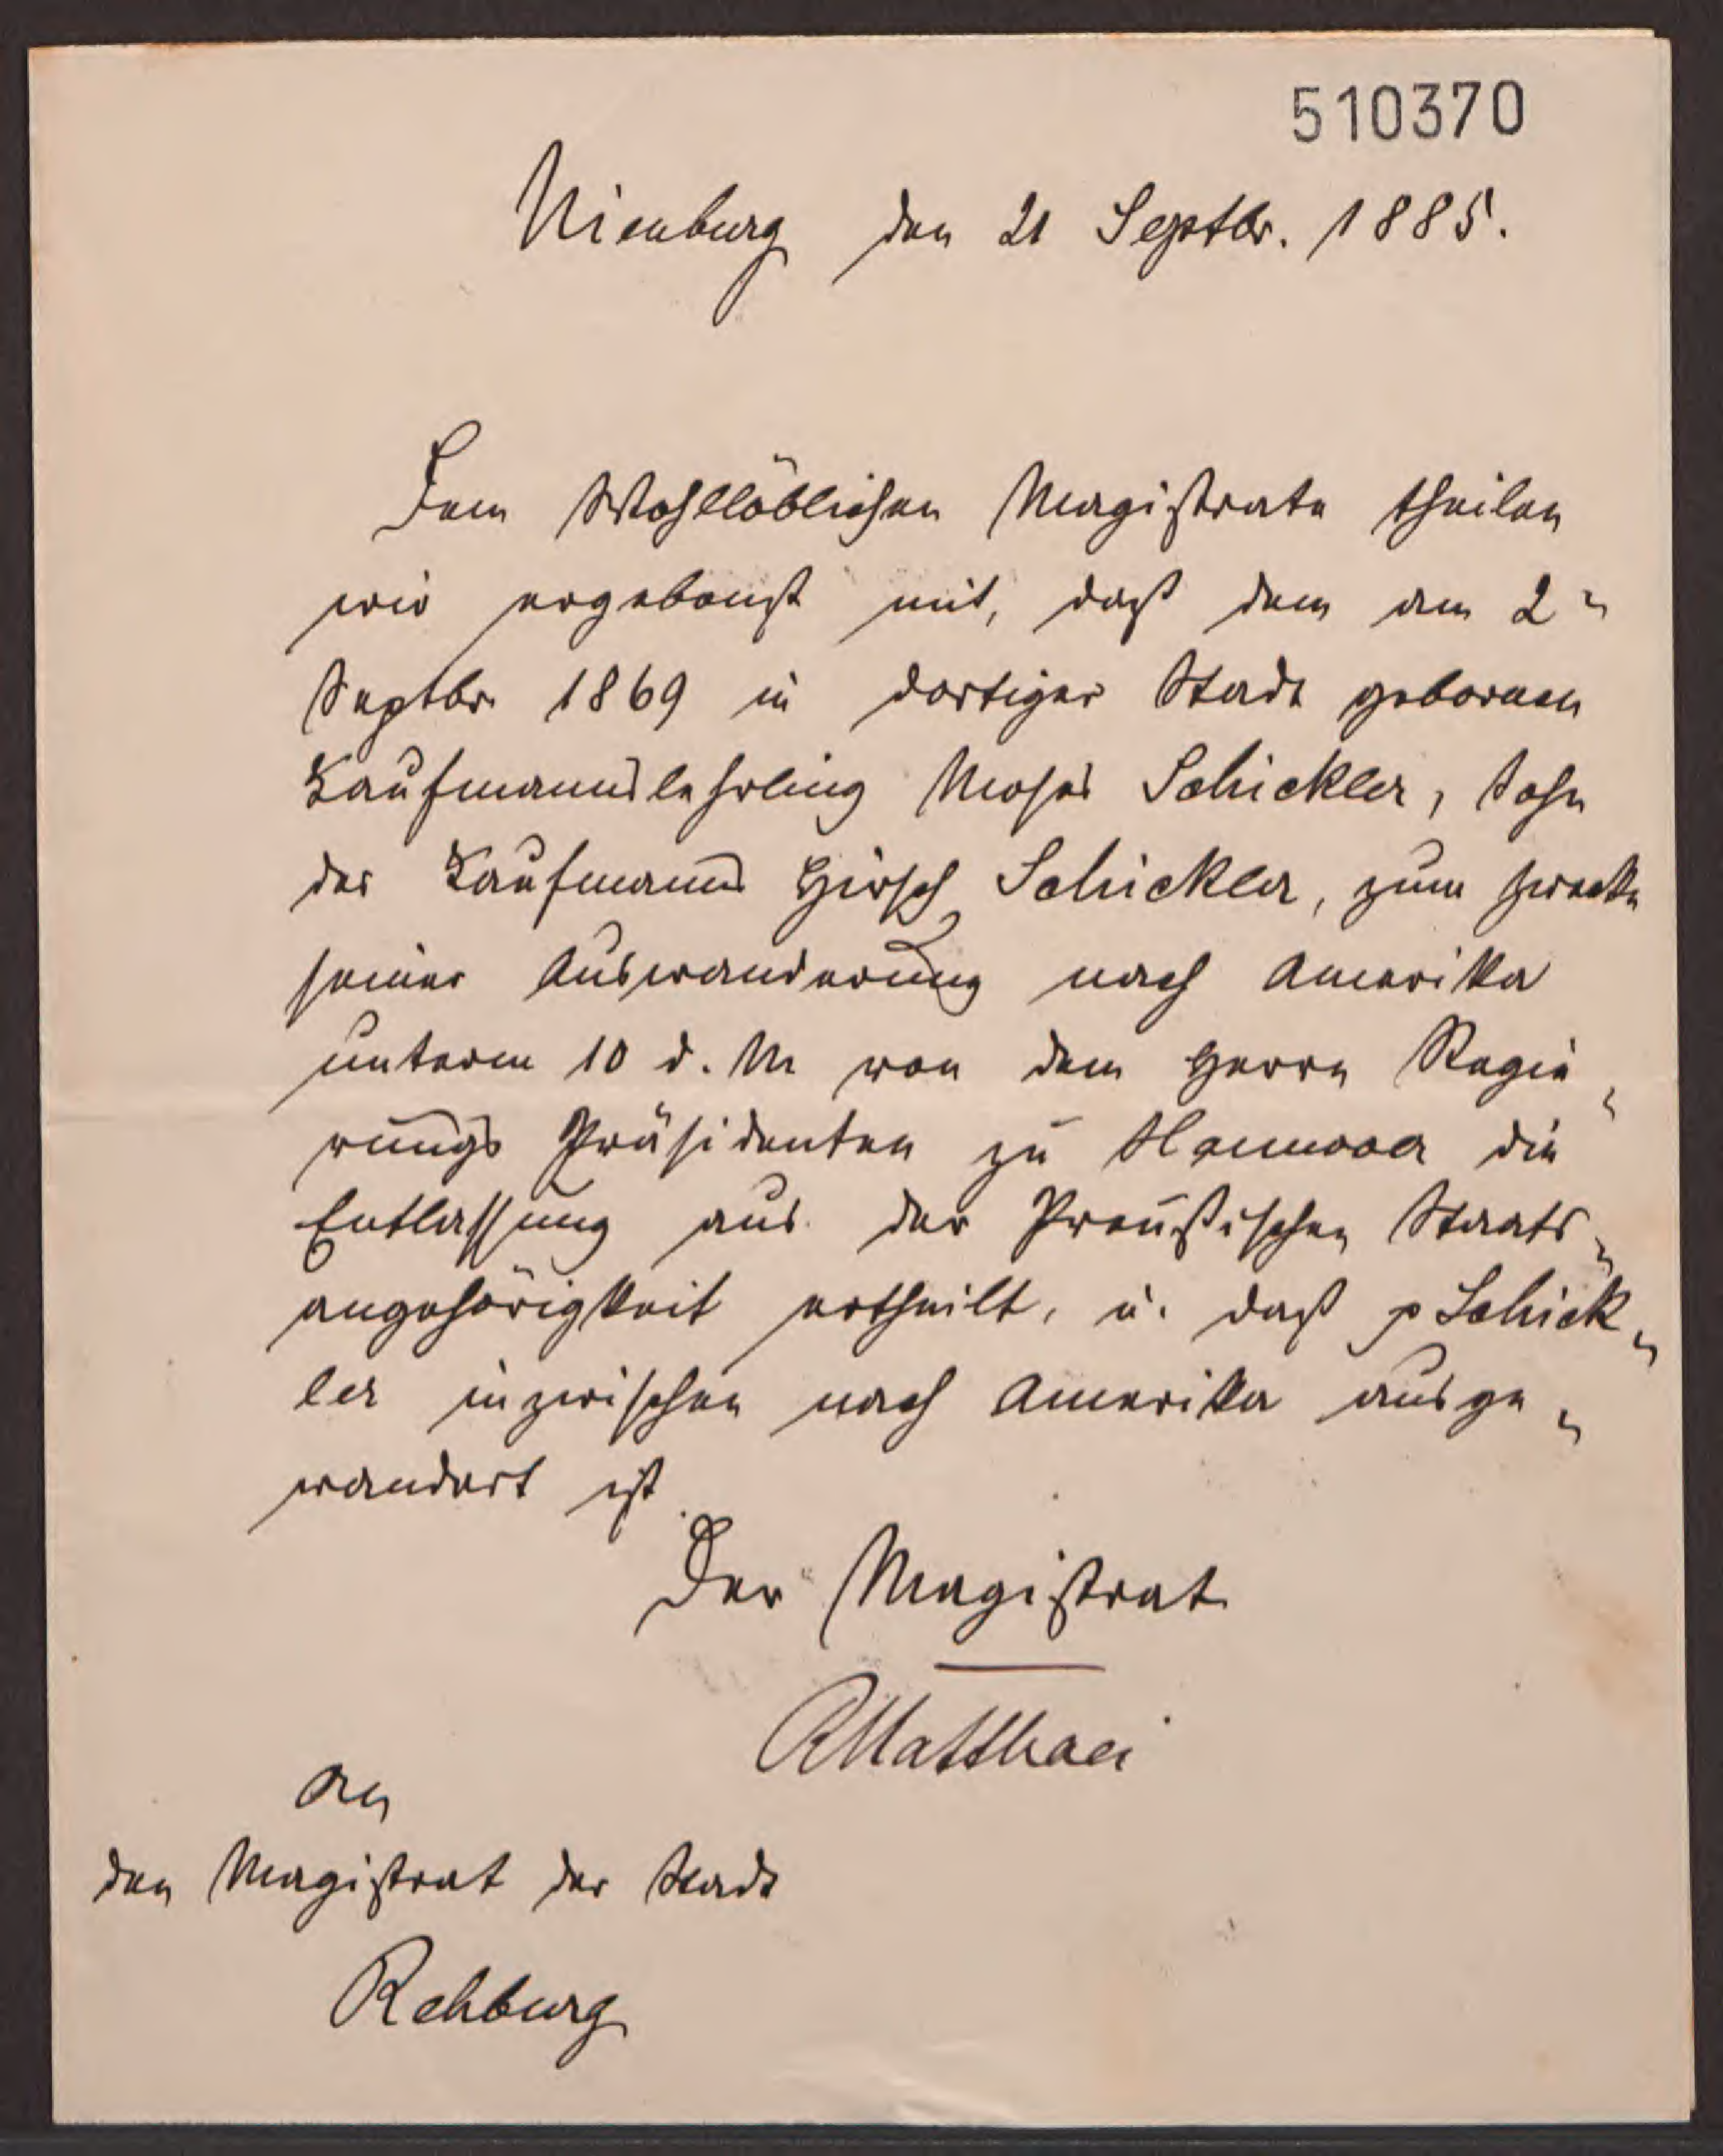 510370
Nienburg den 21 Septbr. 1885.
Dem Wohllöblichen Magistrate theilen
wir ergebenst mit, daß dem am 2"
Septbr 1869 in dortiger Stadt geborenen
Kaufmannslehrling Moses Schickler, Sohn
des Kaufmanns Hirsch Schickler, zum Zwecke
seiner Auswanderung nach Amerika
unterm 10 d. M von dem Herrn Regie„
rungs Präsidenten zu Hannover die
Entlassung aus der Preußischen Staats„
angehörigkeit ertheilt, u. daß p Schick„
ler inzwischen nach Amerika ausge„
wandert ist
Der Magistrat
RMatthaei
An
den Magistrat der Stadt
Rehburg